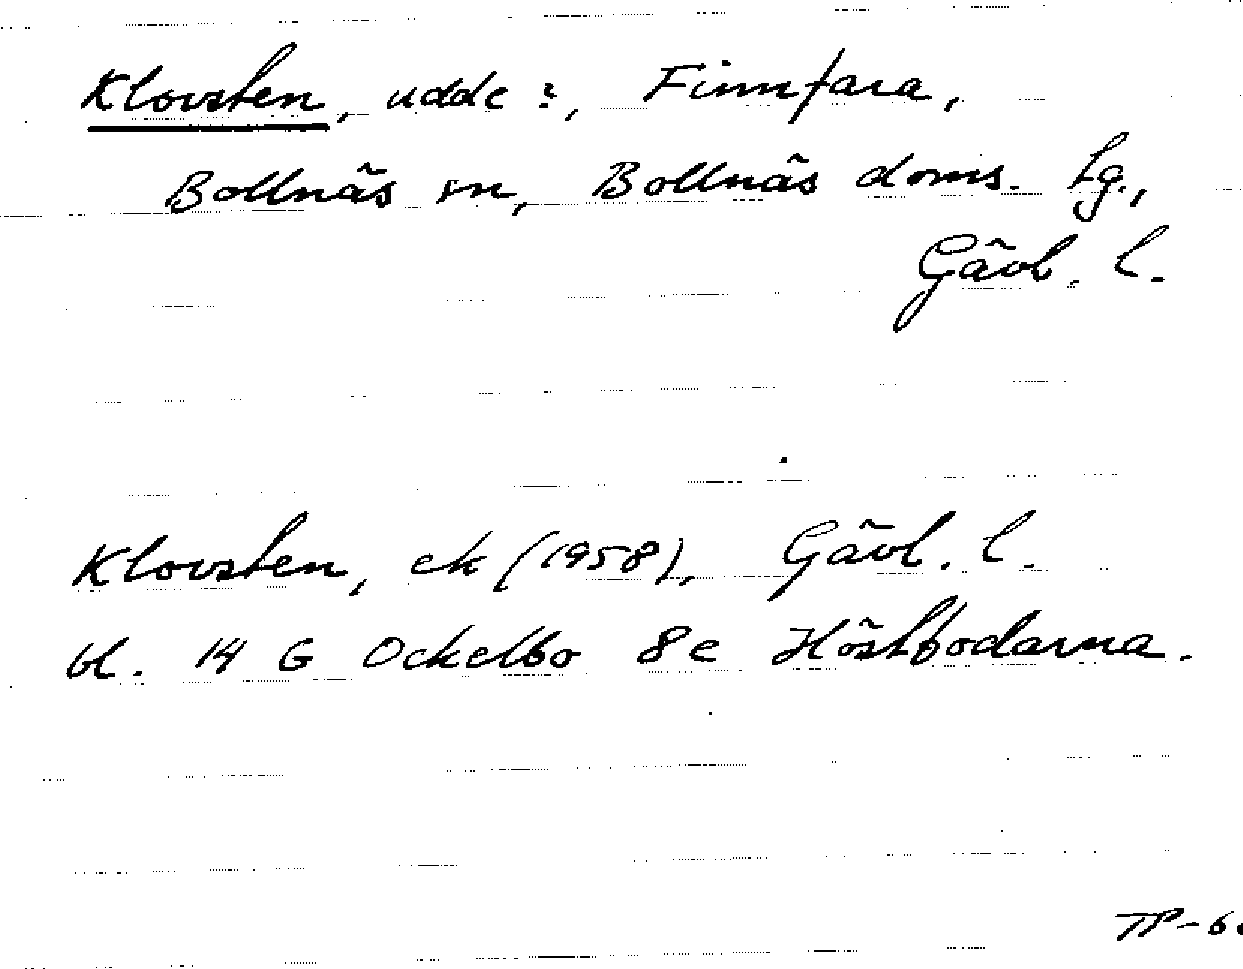 Klovsten, udde?, Finnfara,
Bollnäs sn, Bollnäs doms. tg.,
Gävl. l.
Klovsten, ek (1958), Gävl. l.
bl. 14 G Ockelbo 8e Höstbodarna.
TP-6